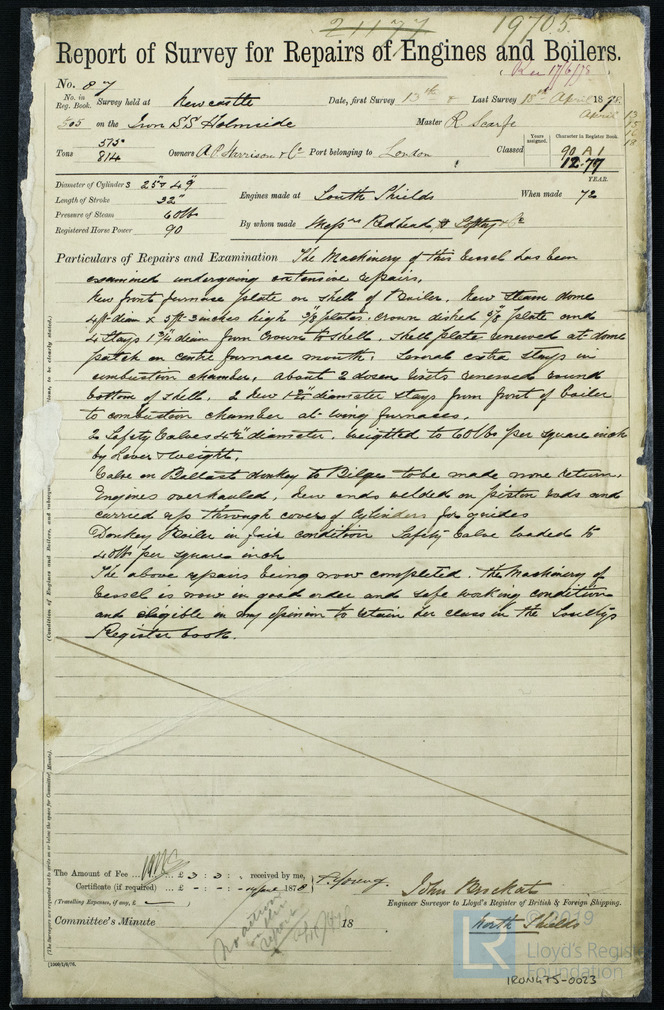 21177 19705.
Report of Survey for Repairs of Engines and Boilers.
No. 87
No. in Reg. Book. Survey held at Newcastle Date, first Survey 13th & Last Survey 18th April 1878
505 on the Iron SS Holmside Master R Scarfe April 13 15 16 18
Tons 575 814 Owners A. P. Harrison & Co Port belonging to London Classed Years assigned. Character in Register Book. 90 A1 12.77
YEAR.
Diameter of Cylinders 25" & 49"
Length of Stroke 32" Engines made at South Shields When made 72
Pressure of Steam 60lb
Registered Horse Power 90 By whom made Messrs Redhead, & Softley & Co
Particulars of Repairs and Examination The Machinery of this Vessel has been
examined undergoing extensive repairs,
New front furnace plate on shell of Boiler, New Steam dome
4ft diam x 5ft 3 inches high 3/8 plates. crown dished 5/8 plate and
4 Stays 1 3/4 diam from Crown to Shell. Shell plate renewed at dome
patch on centre furnace mouth, Several extra Stays in
combustion chamber, about 2 dozen rivets renewed round
bottom of shell. 2 New diameter stays from front of boiler
to combustion chamber at wing furnaces,
2 Safety Valves 4 1/2" diameter, weighted to 60lbs per square inch
by Lever & Weight,
Valve on Ballast donkey to Bilges to be made none return,
Engines overhauled, new ends welded on piston rods and
carried up through covers of Cylinders for guides
Donkey Boiler in fair condition Safety Valve loaded to
40lb per square inch
The above repairs being now completed. the Machinery of
Vessel is now in good order and safe working condition
and eligible in my opinion to retain her class in the Societys
Register book.
(Condition of Engines and Boilers, and
to be clearly stated.)
(The Surveyors are requested not to write on or below the space for Committee's Minute.)
The Amount of Fee ... £ 3 : 3 : received by me,
Certificate (if required) ... £ - : - : - June 1878 T. Young.
(Travelling Expenses, if any, £ )
John
Engineer Surveyor to Lloyd's Register of British & Foreign Shipping.
North Shields
Committee's Minute 18
No action on this report
LR © 2019
Lloyd's Register
Foundation
IRON475-0023